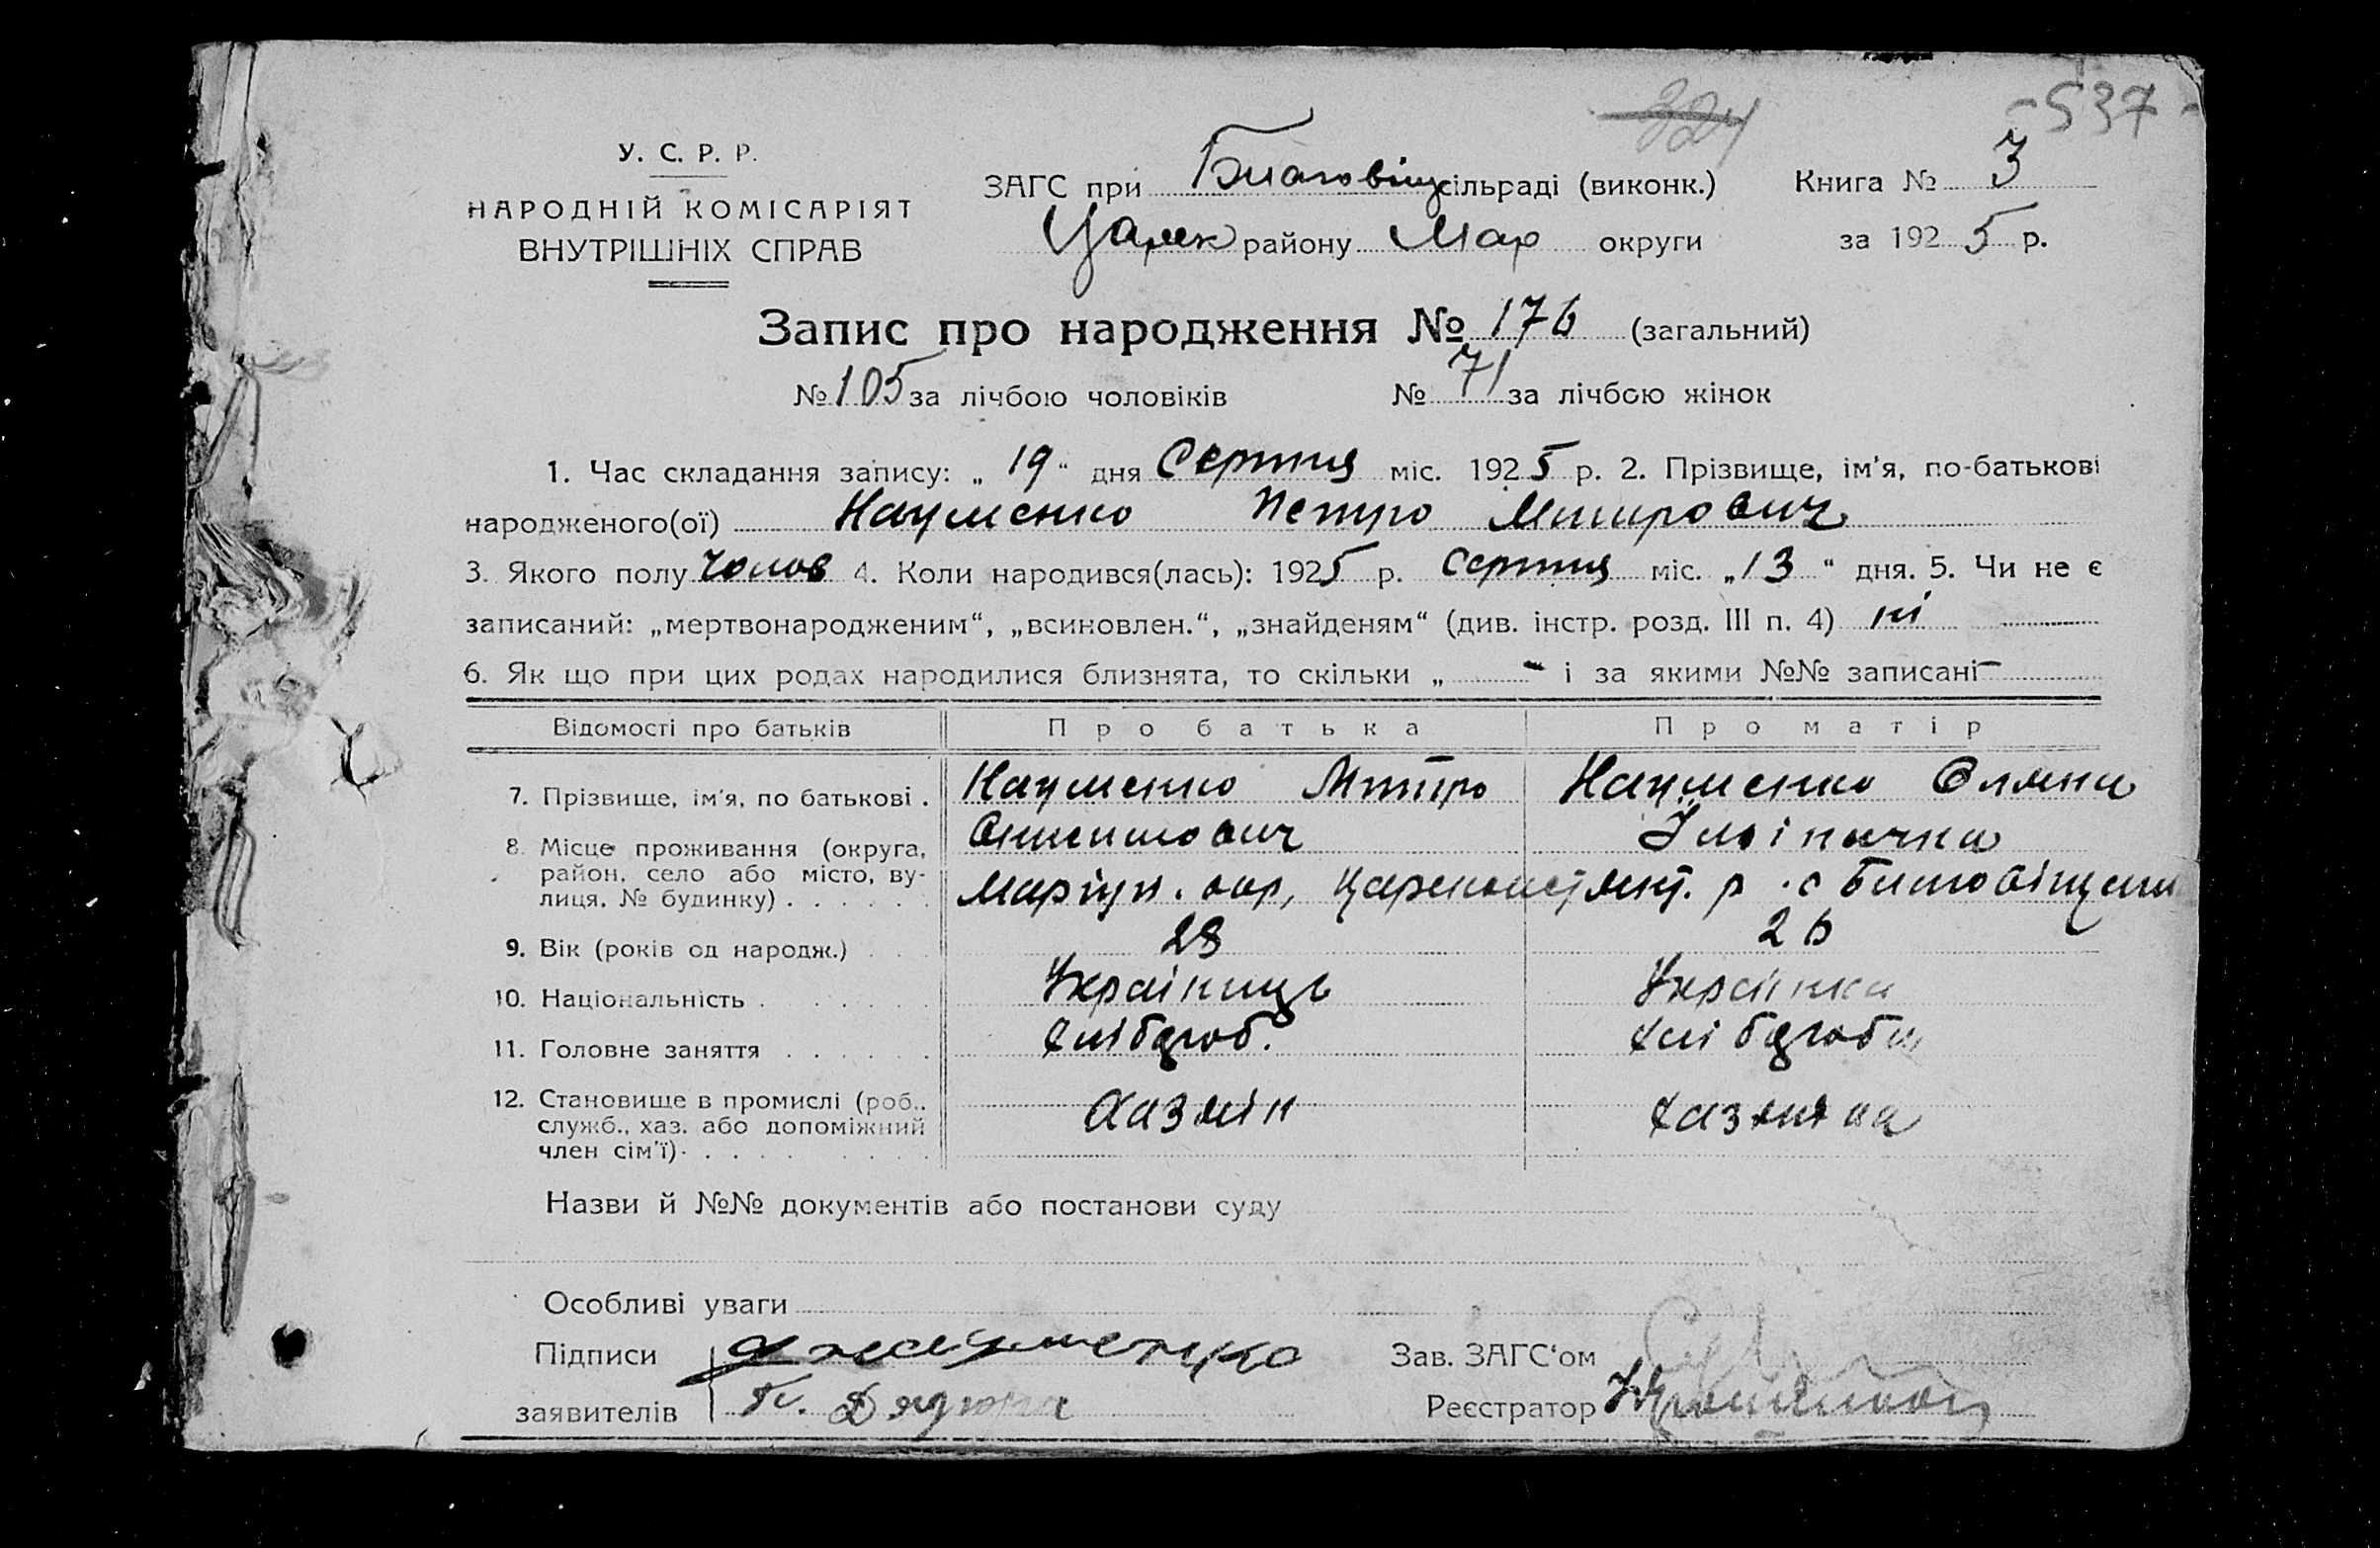 324
-537-
У. С. Р. Р.
НАРОДНІЙ КОМІСАРІЯТ
ВНУТРІШНІХ СПРАВ
ЗАГС при Благовіщ сільраді (виконк.) Книга № 3
Царек району Мар округи за 1925 р.
Запис про народження № 176 (загальний)
№ 105 за лічбою чоловіків № 71 за лічбою жінок
1. Час складання запису: „ 19 “ дня Серпня міс. 1925 р. 2. Прізвище, ім’я, по-батькові
народженого(ої) Науменко Петро Митрович
3. Якого полу Чолов 4. Коли народився(лась): 1925 р. Серпня міс. „ 13 “ дня. 5. Чи не є
записаний: „мертвонародженим“, „всиновлен.“, „знайденям“ (див. інстр. розд. III п. 4) ні
6. Як що при цих родах народилися близнята, то скільки „ - і за якими №№ записані -
Відомості про батьків Про батька Про матір
7. Прізвище, ім’я, по батькові . Науменко Митро Науменко Оляна
Ільінична
8. Місце проживання (округа,
район, село або місто, ву-
лиця, № будинку) . . . . . . Маріуп. окр, Царекост р. с
9. Вік (років од народж.) . . . 28 26
10. Національність . . . . . Українець Українка
11. Головне заняття . . . . . . Хлібороб.
12. Становище в промислі (роб.,
служб., хаз. або допоміжний
член сім’ї) . . . . . . . . . Хазяїн хазяйка
Назви й №№ документів або постанови суду
Особливі уваги
Підписи Науменко Зав. ЗАГС‘ом
заявителів Реєстратор